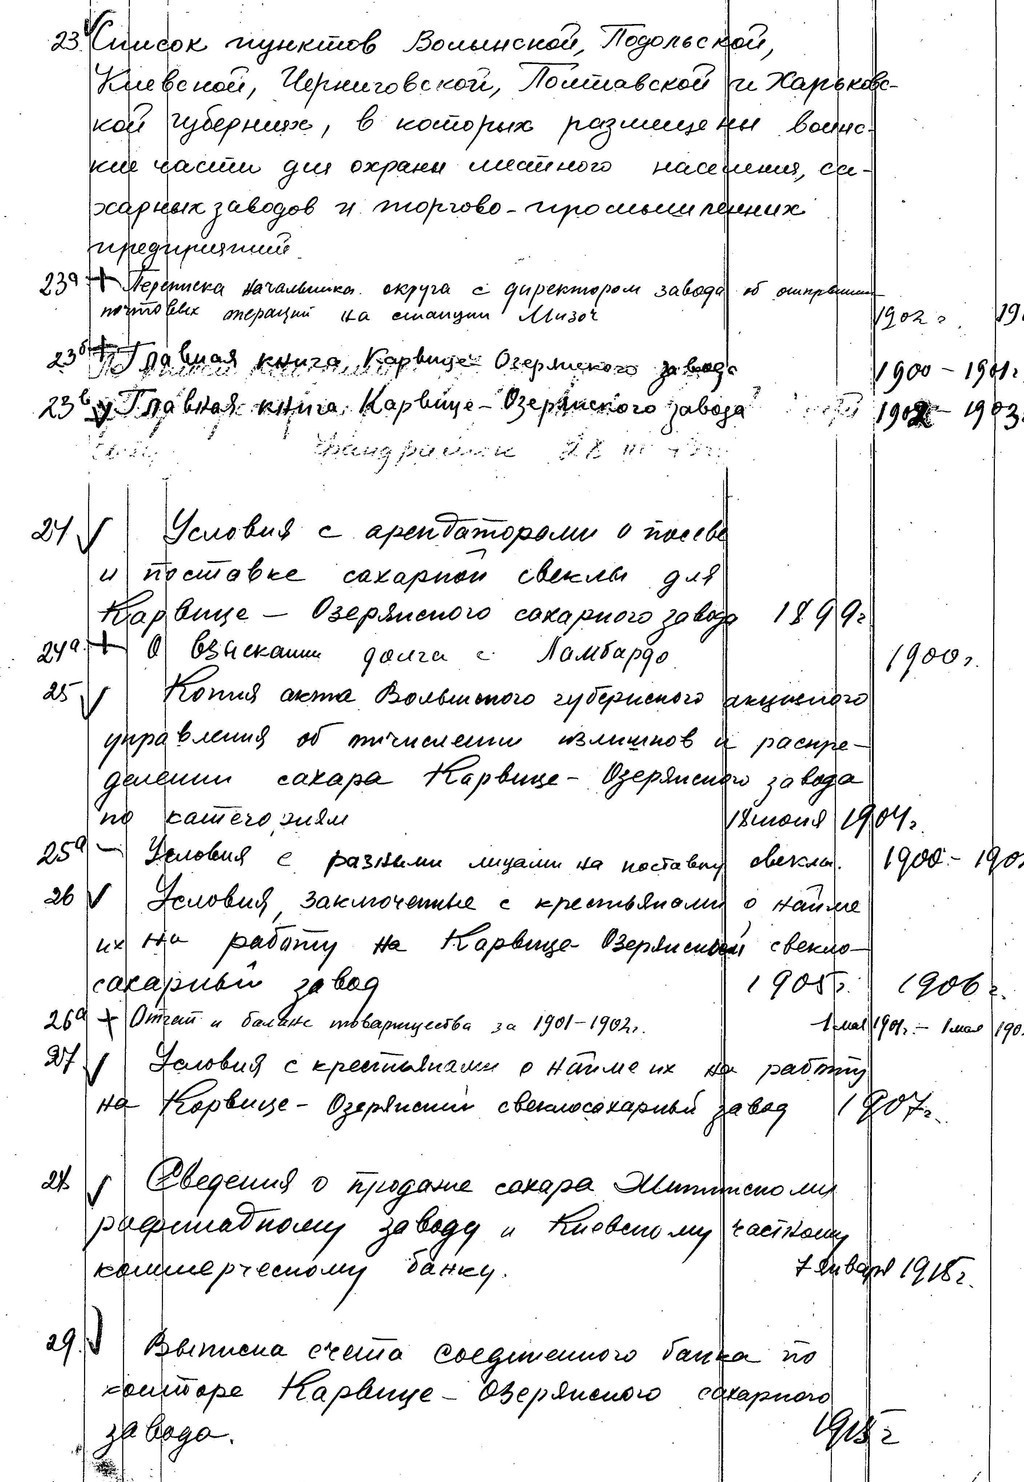 23 Список пунктов Волынской, Подольской,
Киевской, Черниговской, Полтавской и Харьковс-
кой губерних, в которых размещены воинс-
кие части для охраны местного населения, са-
харных заводов и торгово-промышленних
предприятий.
23а + Переписка начальника округа с директором завода об
почтовых операций на станции Мизоч 1902 г.
23б + Главная книга Карвице-Озерянского завода 1900 - 1901г
23в Главная книга Карвице-Озерянского завода 1902 - 1903
24 Условия с арендаторами о посеве
и поставке сахарной свеклы для
Карвице - Озерянского сахарного завода 1899г
24а + О взыскании долга с Ламбардо 1900г.
25 Копия акта Волынского губернского акцизного
управления об отчислении излишков и распре-
делении сахара Карвице-Озерянского завода
по категориям 18 июня 1904г.
25а - Условия с разными лицами на поставку свеклы. 1900 -
26 Условия, заключенные с крестьянами о найме
их на работу на Карвице-Озерянский свекло-
сахарный завод 1905г. 1906г.
26а + Отчет и баланс товарищества за 1901-1902г. 1 мая 1901г. - 1 мая
27 Условия с крестьянами о найме их на работу
на Карвице-Озерянский свеклосахарный завод 1907г.
28 Сведения о продаже сахара
рафинадному заводу и Киевскому частному
коммерческому банку. 7 января 1915г.
29. Выписка счета соединенного банка по
конторе Карвице-Озерянского сахарного
завода. 1915г